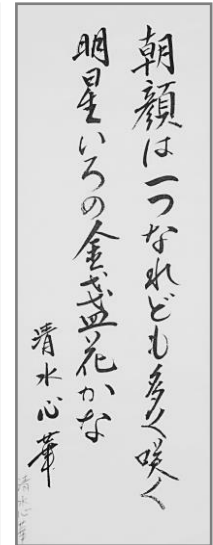 朝顔は一つなれども多く咲く
明星いろの金盞花かな
清水心華
清水心華